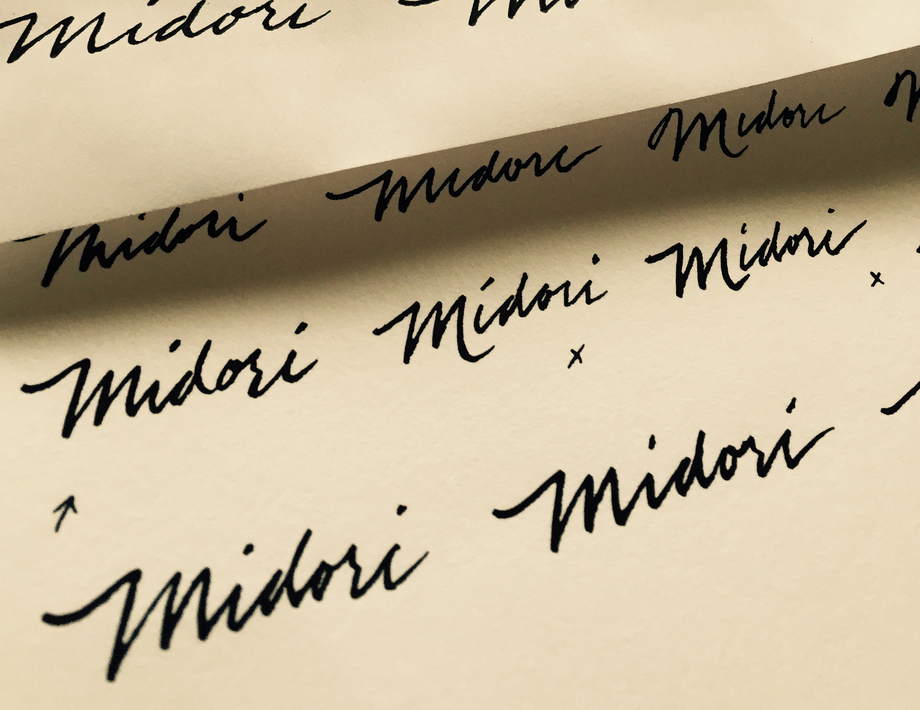 Midori
Midori Midori Midori
Midori Midori Midori
x x
Midori Midori